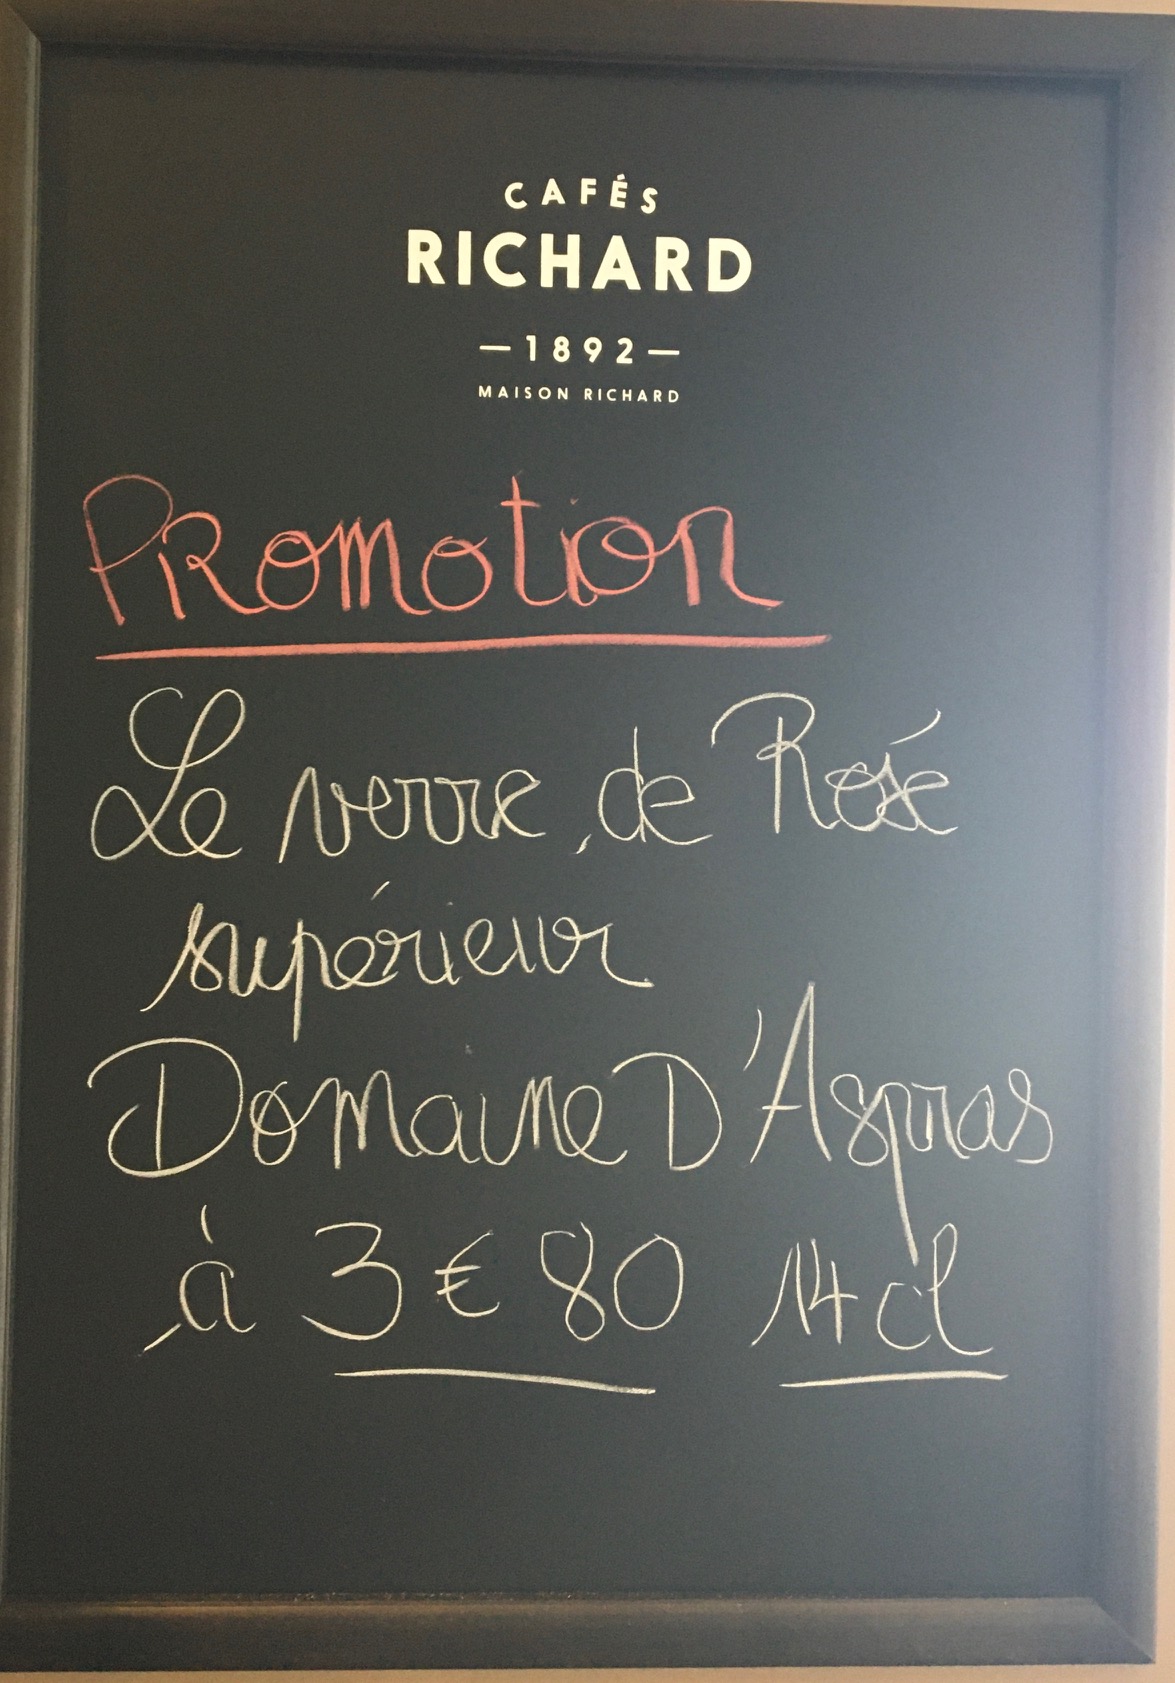 CAFÉS
RICHARD
—1892—
MAISON RICHARD
Promotion
Le verre de Rosé
supérieur
Domaine D'Aspras
à 3€80 14cl